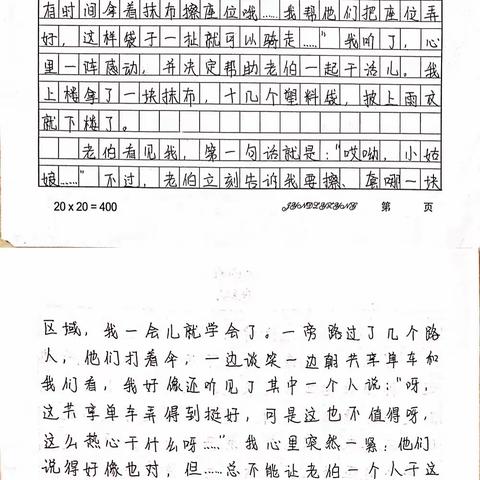 有时间拿着抹布擦座位哦……我帮他们把座位弄
好，这样袋子一扯就可以骑走……”我听了，心
里一阵感动，并决定帮助老伯一起干活儿。我
上楼拿了一块抹布，十几个塑料袋，披上雨衣
就下楼了。
老伯看见我，第一句话就是：“哎呦，小姑
娘……”不过，老伯立刻告诉我要擦、套哪一块
20×20=400
第 页
区域，我一会儿就学会了。一旁路过了几个路
人，他们打着伞，一边谈笑一边朝共享单车和
我们看，我好像还听见了其中一个人说：“呀，
这共享单车弄得到挺好，可是这也不值得呀，
这么热心干什么呀……”我心里突然一紧：他们
说得好像也对，但……总不能让老伯一个人干这